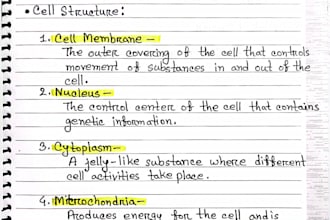 • Cell Structure:
1. Cell Membrane –
The outer covering of the cell that controls
movement of substances in and out of the
cell.
2. Nucleus –
The control center of the cell that contains
genetic information.
3. Cytoplasm –
A jelly-like substance where different
cell activities take place.
4. Mitochondria –
Produces energy for the cell and is